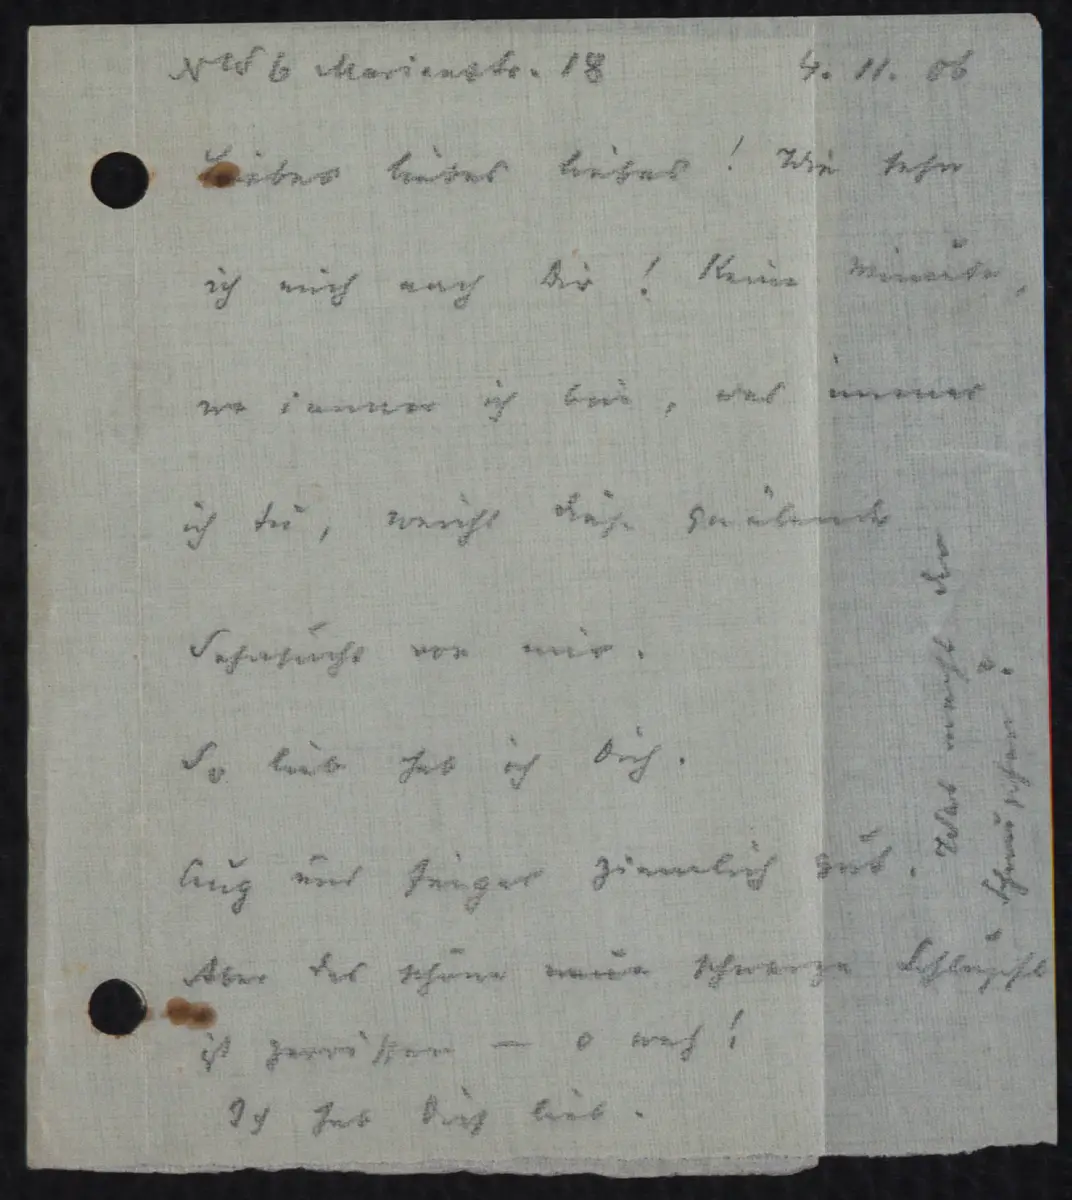 NW 6 Marienstr. 18 4. 11. 06
Liebes liebes liebes! Wie sehn
ich mich nach Dir! Keine Minute,
wo immer ich bin, was immer
ich tu, weicht diese quälende
Sehnsucht von mir.
So lieb hab ich Dich.
Aug und Finger ziemlich gut.
Aber das schöne neue schwarze
ist zerrissen — o weh!
Ich hab Dich lieb.
Was macht der
Schnupfen?